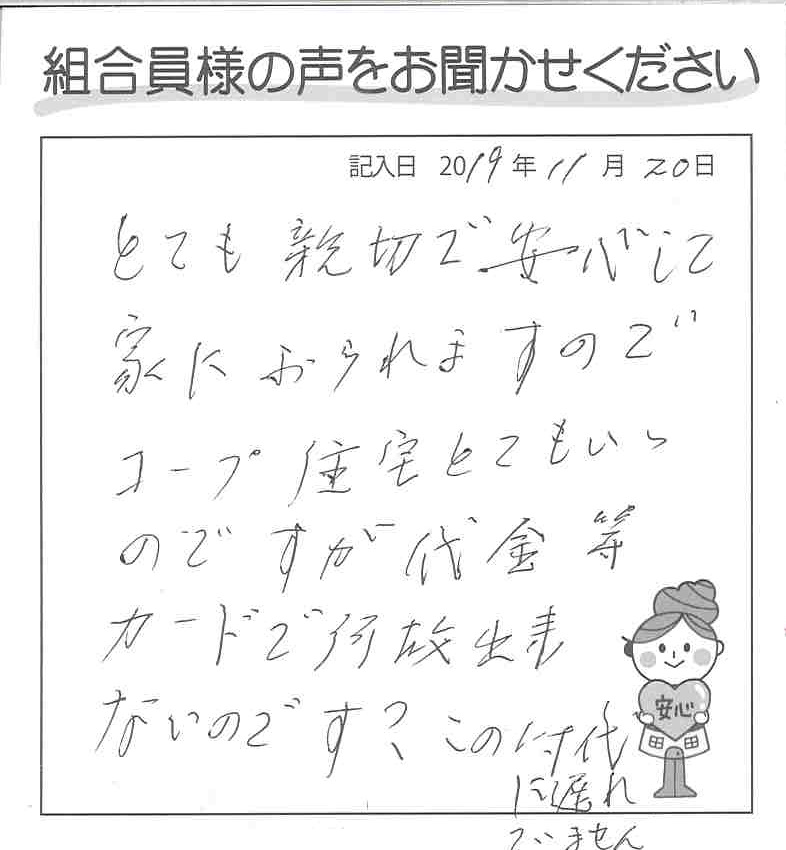 組合員様の声をお聞かせください
記入日 2019年11月20日
とても親切で安心して
家におられますので
コープ住宅とてもいい
のですが代金等
カードで何故出来
ないのです?この時代
に遅れ
ていません
安心